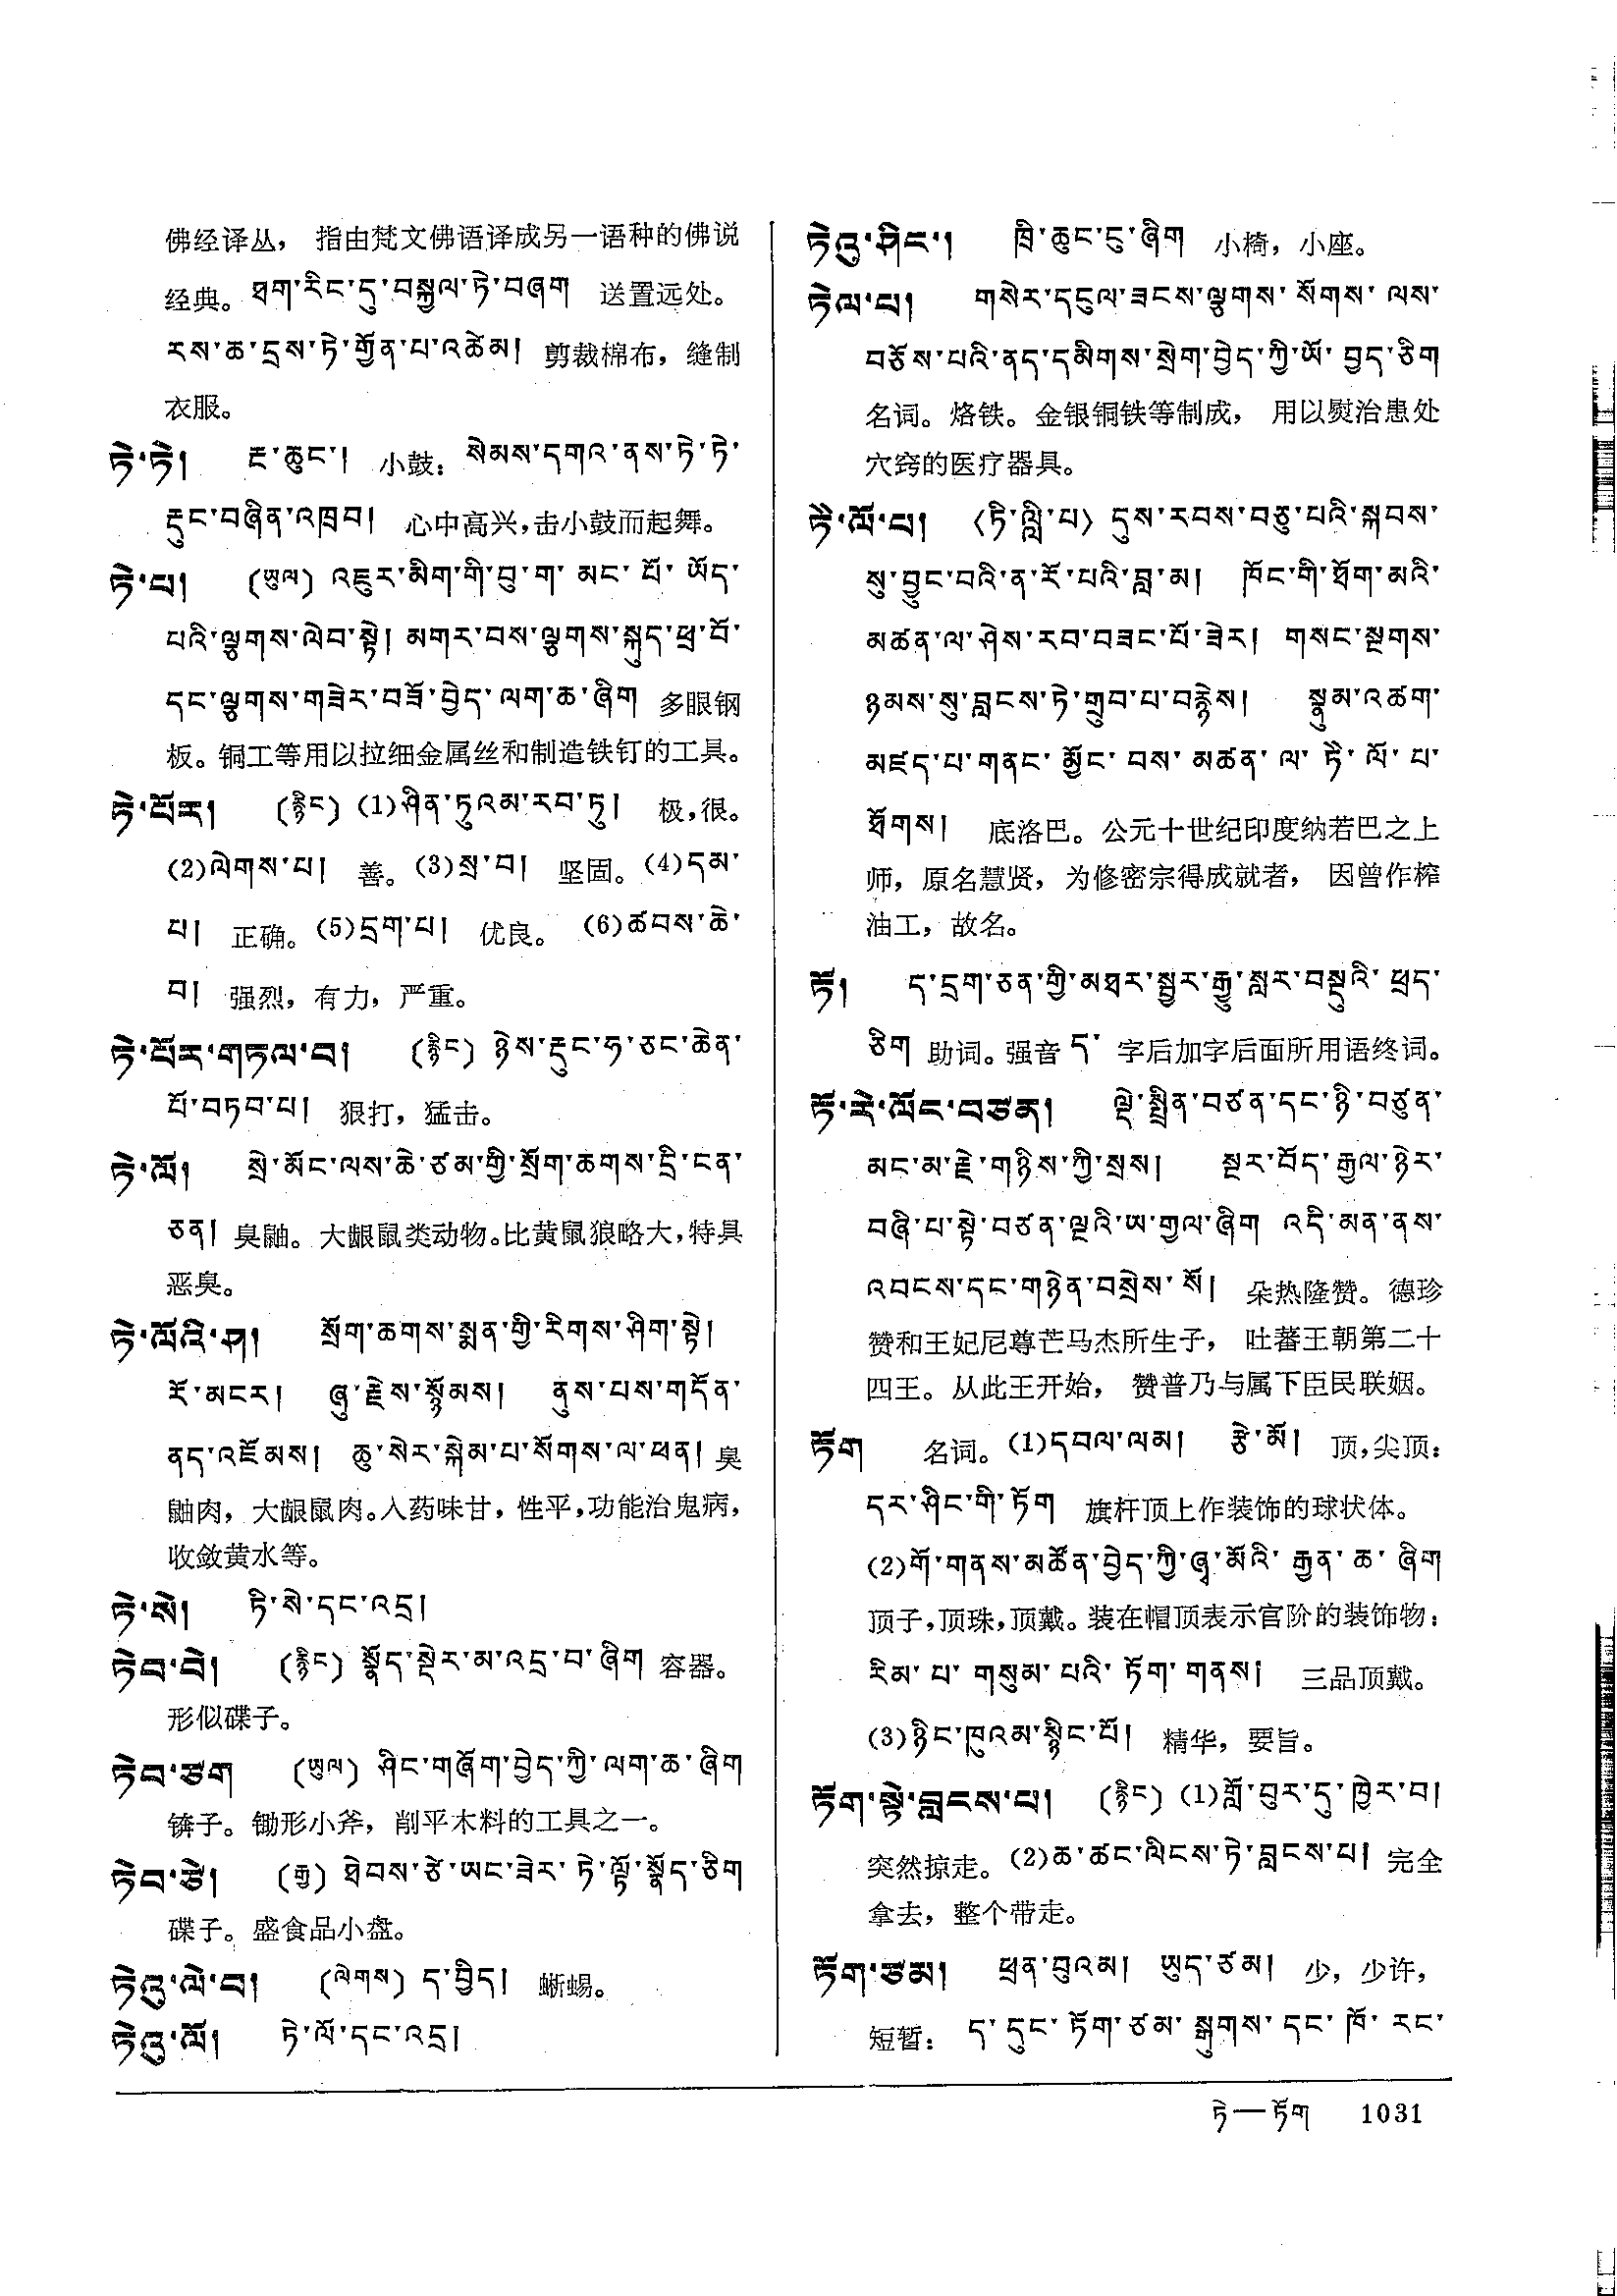 佛经译丛， 指由梵文佛语译成另一语种的佛说
经典。ཐག་རིང་དུ་བསྐྱལ་ཏེ་བཞག 送置远处。
རས་ཆ་དྲས་ཏེ་གྱོན་པ་འཚེམ། 剪裁棉布，缝制
衣服。
ཏེ་ཏེ། རྔ་ཆུང་། 小鼓：སེམས་དགའ་ནས་ཏེ་ཏེ་
རྡུང་བཞིན་འཁྲབ། 心中高兴，击小鼓而起舞。
ཏེ་པ། (ཡུལ) འཇུར་མིག་གི་བུ་ག་ མང་ པོ་ ཡོད་
པའི་ལྕགས་ལེབ་སྟེ། མགར་བས་ལྕགས་སྐུད་ཕྲ་བོ་
དང་ལྕགས་གཟེར་བཟོ་བྱེད་ལག་ཆ་ཞིག 多眼钢
板。铜工等用以拉细金属丝和制造铁钉的工具。
ཏེ་པོར། (རྙིང) (1)ཤིན་ཏུའམ་རབ་ཏུ། 极，很。
(2)ལེགས་པ། 善。(3)སྲ་བ། 坚固。(4)དམ་
པ། 正确。(5)དྲག་པ། 优良。 (6)ཚབས་ཆེ་
བ། 强烈，有力，严重。
ཏེ་པོར་གཏལ་བ། (རྙིང) ཉེས་རྡུང་ཧ་ཅང་ཆེན་
པོ་བཏབ་པ། 狠打，猛击。
ཏེ་ལོ། སྲེ་མོང་ལས་ཆེ་ཙམ་གྱི་སྲོག་ཆགས་དྲི་ངན་
ཅན། 臭鼬。大龈鼠类动物。比黄鼠狼略大，特具
恶臭。
ཏེ་ལོའི་ཤ། སྲོག་ཆགས་སྨན་གྱི་རིགས་ཤིག་སྟེ།
རོ་མངར། ཞུ་རྗེས་སྙོམས། ནུས་པས་གདོན་
ནད་འཇོམས། ཆུ་སེར་སྐེམ་པ་སོགས་ལ་ཕན། 臭
鼬肉，大龈鼠肉。入药味甘，性平，功能治鬼病，
收敛黄水等。
ཏེ་སེ། ཏི་སེ་དང་འདྲ།
ཏེབ་བེ། (རྙིང) སྣོད་སྡེར་མ་འདྲ་བ་ཞིག 容器。
形似碟子。
ཏེབ་ཙག (ཡུལ) ཤིང་གཞོག་བྱེད་ཀྱི་ལག་ཆ་ཞིག
锛子。锄形小斧，削平木料的工具之一。
ཏེབ་ཙེ། (རྒྱ) ཐེབས་ཙེ་ཡང་ཟེར་ ཏེ་ལྟོ་སྣོད་ཅིག
碟子。盛食品小盘。
ཏེའུ་ལེ་བ། (ལེགས) ད་བྱིད། 蜥蜴。
ཏེའུ་ལོ། ཏེ་ལོ་དང་འདྲ།
ཏེའུ་ཤིང་། ཁྲི་ཆུང་ངུ་ཞིག 小椅，小座。
ཏེལ་པ། གསེར་དངུལ་ཟངས་ལྕགས་ སོགས་ ལས་
བཅོས་པའི་ནད་དམིགས་སྲེག་བྱེད་ཀྱི་ཡོ་ བྱད་ཅིག
名词。烙铁。金银铜铁等制成， 用以熨治患处
穴窍的医疗器具。
ཏཻ་ལོ་པ། 〈ཏི་ལླི་པ〉 དུས་རབས་བཅུ་པའི་སྐབས་
སུ་བྱུང་བའི་ན་རོ་པའི་བླ་མ། ཁོང་གི་ཐོག་མའི་
མཚན་ལ་ཤེས་རབ་བཟང་པོ་ཟེར། གསང་སྔགས་
ཉམས་སུ་བླངས་ཏེ་གྲུབ་པ་བརྙེས། སྣུམ་འཚག་
མཛད་པ་གནང་ མྱོང་ བས་ མཚན་ ལ་ ཏཻ་ ལོ་ པ་
ཐོགས། 底洛巴。公元十世纪印度纳若巴之上
师，原名慧贤，为修密宗得成就者， 因曾作榨
油工，故名。
ཏོ། ད་དྲག་ཅན་གྱི་མཐར་སྦྱར་རྒྱུ་སླར་བསྡུའི་ ཕྲད་
ཅིག 助词。强音 ད་ 字后加字后面所用语终词。
ཏོ་རེ་ལོང་བཙན། ལྡེ་སྤྲིན་བཙན་དང་ཉི་བཙུན་
མང་མ་རྗེ་གཉིས་ཀྱི་སྲས། སྔར་བོད་རྒྱལ་ཉེར་
བཞི་པ་སྟེ་བཙན་ལྔའི་ཡ་གྱལ་ཞིག འདི་མན་ནས་
འབངས་དང་གཉེན་བསྲེས་སོ། 朵热隆赞。德珍
赞和王妃尼尊芒马杰所生子， 吐蕃王朝第二十
四王。从此王开始， 赞普乃与属下臣民联姻。
ཏོག 名词。(1)དབལ་ལམ། རྩེ་མོ། 顶，尖顶：
དར་ཤིང་གི་ཏོག 旗杆顶上作装饰的球状体。
(2)གོ་གནས་མཚོན་བྱེད་ཀྱི་ཞྭ་མོའི་ རྒྱན་ཆ་ ཞིག
顶子，顶珠，顶戴。装在帽顶表示官阶的装饰物：
རིམ་ པ་ གསུམ་ པའི་ ཏོག་ གནས། 三品顶戴。
(3)ཉིང་ཁུའམ་སྙིང་པོ། 精华，要旨。
ཏོག་སྟེ་བླངས་པ། (རྙིང) (1)གློ་བུར་དུ་ཁྱེར་བ།
突然掠走。(2)ཆ་ཚང་ལིངས་ཏེ་བླངས་པ། 完全
拿去，整个带走。
ཏོག་ཙམ། ཕྲན་བུའམ། ཡུད་ཙམ། 少，少许，
短暂： ད་ དུང་ ཏོག་ ཙམ་ སྒུགས་ དང་ ཁོ་ རང་
ཏེ—ཏོག 1031